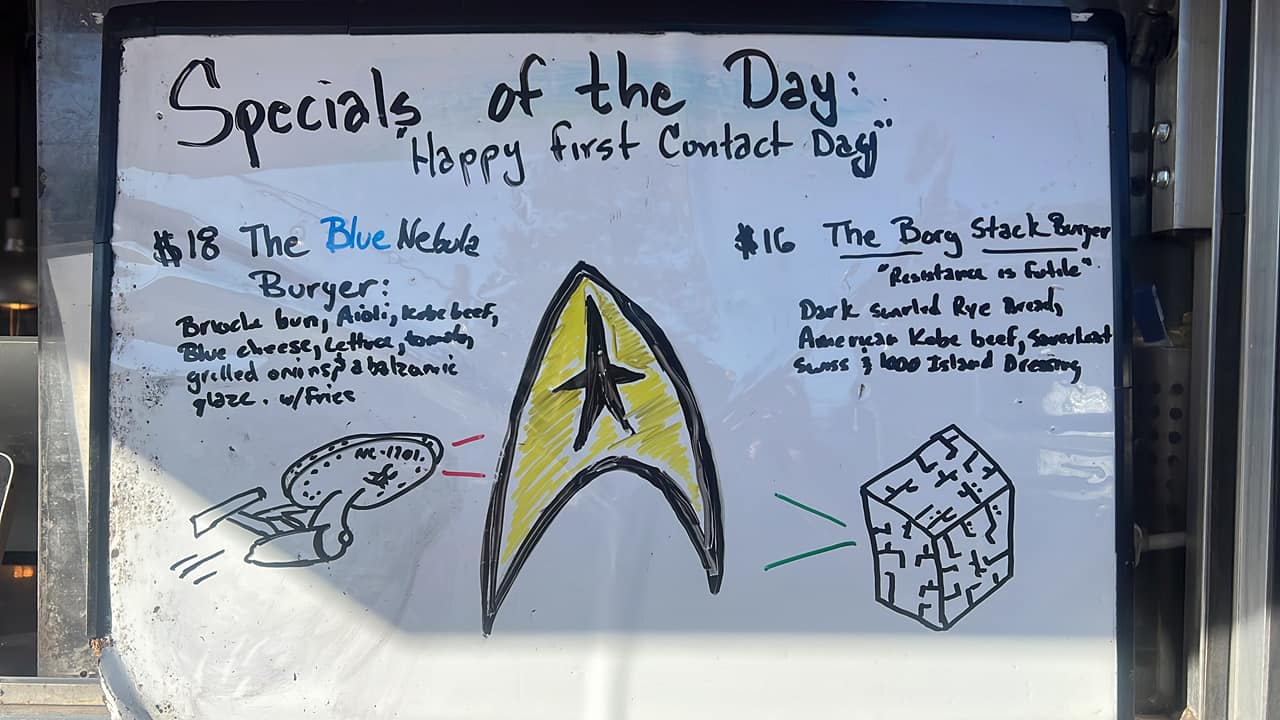 Specials of the Day:
"Happy first Contact Day"
$18 The Blue Nebula
Burger:
Brioche bun, Aioli, Kobe beef,
Blue cheese, Lettuce, tomato,
grilled onins, & a balzamic
glaze. w/Fries
$16 The Borg Stack Burger
"Resistance is Futile".
Dark swirled Rye Bread,
American Kobe beef, Sauerkraut
Swiss & 1000 Island Dressing
NC-1701